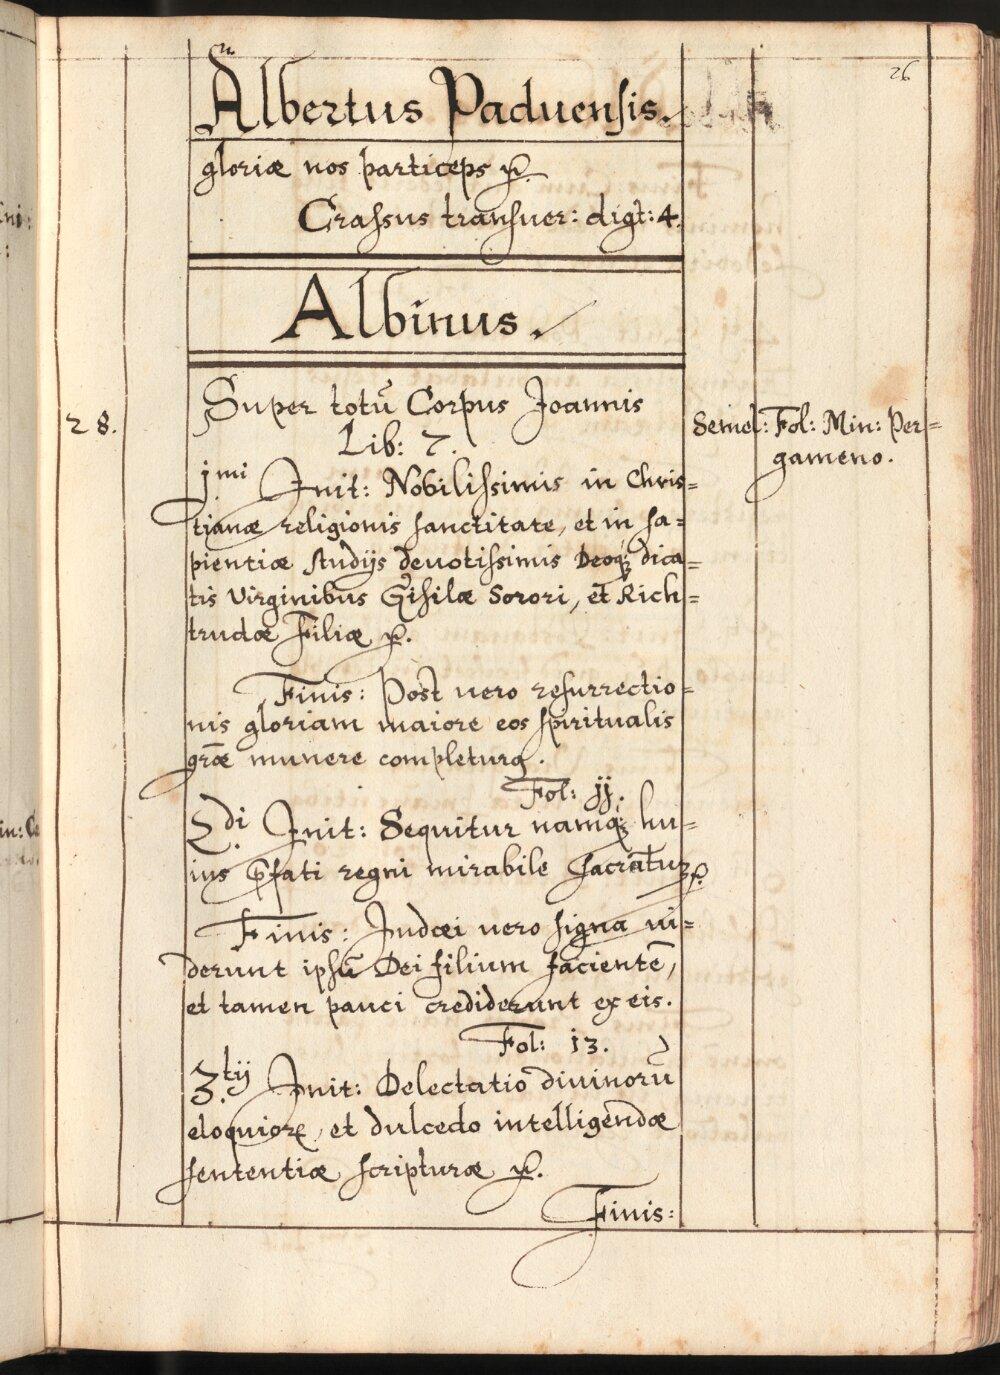 26
Albertus Paduensis.
gloriæ nos particeps &c.
Crassus transuer: digt: 4.
Albinus.
28.
Super totū Corpus Joannis
Lib: 7.
Semel: Fol: Min: Per=
gameno.
jmi Init: Nobilissimis in Chris=
tianæ religionis sanctitate, et in sa=
pientiæ studijs deuotissimis Deoq̨ dica=
tis Virginibus Gisilæ Sorori, et Rich=
trudæ Filiæ &c.
Finis: Post uero resurrectio=
nis gloriam maiore eos spiritualis
grãe munere completurq.
Fol: jj.
2di Init: Sequitur namq̨ hu=
ius p̄fati regni mirabile
Finis: Judæi uero signa ui=
derunt ipsū Dei filium facientē,
et tamen pauci crediderunt ex eis.
Fol: 13.
3tij Init: Delectatio diuinorū
eloquiorꝝ, et dulcedo intelligendæ
sententiæ scripturæ &c.
Finis: